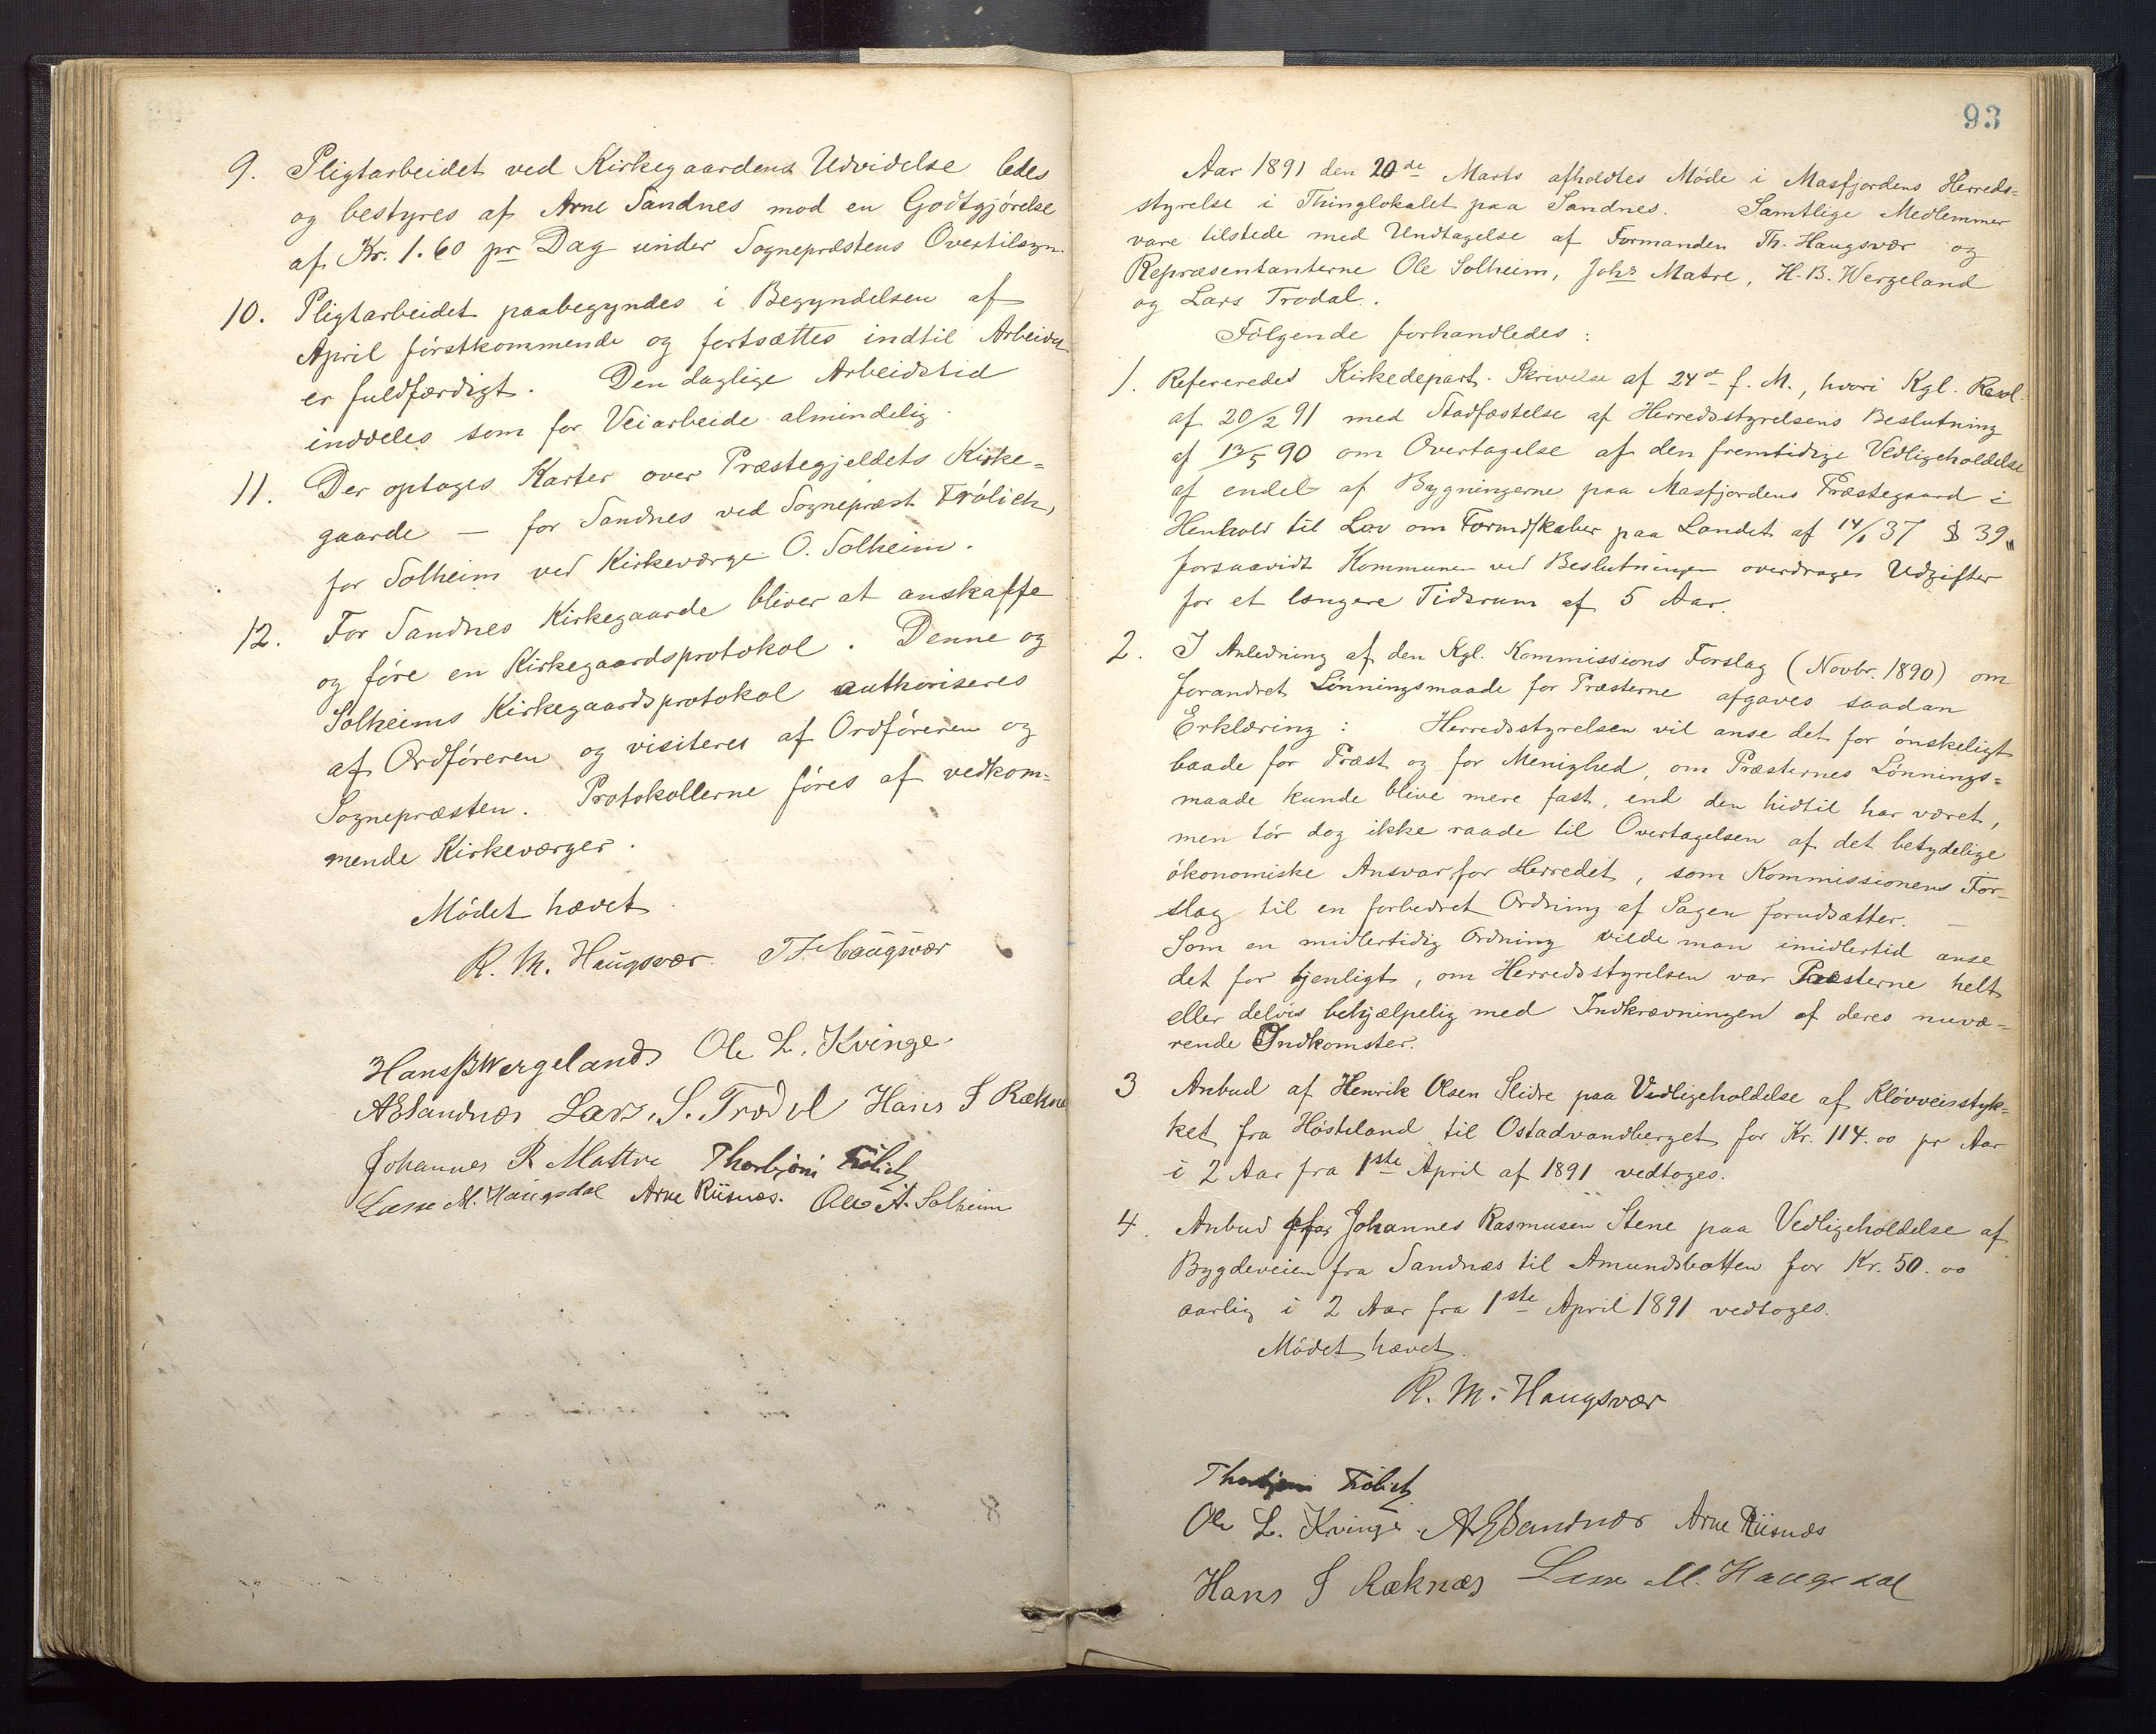 9. Pligtarbeidet ved Kirkegaardens Udvidelse ledes
og bestyres af Arne Sandnes mod en Godtgjørelse
af Kr. 1.60 pr Dag under Sogneprestens Overtilsyn.
10. Pligtarbeidet paabegyndes i Begyndelsen af
April førstkommende og fortsættes indtil Arbeidet
er fuldfærdigt. Den daglige Arbeidstid
inddeles som for Veiarbeide almindelig.
11. Der optages Karter over Præstegjeldets Kirke=
gaarde — for Sandnes ved Sognepræst Frölich,
for Solheim ved Kirkeværge O. Solheim.
12. For Sandnes Kirkegaarde bliver at anskaffe
og føre en Kirkegaardsprotokol. Denne og
Solheims Kirkegaardsprotokol authoriseres
af Ordføreren og visiteres af Ordføreren og
Sognepræsten. Protokollerne føres af vedkom=
mende Kirkeværger.
Mødet hævet.
R. M. Haugsvær Th Haugsvær
Hans B Wergeland Ole L. Kvinge
AESandnes Lars. S. Trodal Hans J Ræknes
Johannes R Mattre Thorbjørn Frölich
Lasse M. Haugsdal Arne Riisnæs. Ole A. Solheim
93
Aar 1891 den 20de Marts afholdtes Møde i Masfjordens Herreds=
styrelse i Thinglokalet paa Sandnes. Samtlige Medlemmer
vare tilstede med Undtagelse af Formanden Th. Haugsvær og
Repræsentanterne Ole Solheim, Johs Matre, H. B. Wergeland
og Lars Trodal.
Følgende forhandledes:
1. Refereredes Kirkedepart. Skrivelse af 24de f. M., hvori Kgl. Resol.
af 20/2 91 med Stadfæstelse af Herredsstyrelsens Beslutning
af 13/5 90 om Overtagelse af den fremtidige Vedligeholdelse
af endel af Bygningerne paa Masfjordens Præstegaard i
Henhold til Lov om Formdskaber paa Landet af 14/1 37 § 39,
forsaavidt Kommunen ved Beslutningen overdrages Udgifter
for et længere Tidsrum af 5 Aar.
2. I Anledning af den Kgl. Kommissions Forslag (Novbr. 1890) om
forandret Lønningsmaade for Præsterne afgaves saadan
Erklæring: Herredsstyrelsen vil anse det for ønskeligt
baade for Præst og for Menighed, om Præsternes Lønnings=
maade kunde blive mere fast, end den hidtil har været,
men tør dog ikke raade til Overtagelsen af det betydelige
økonomiske Ansvar for Herredet, som Kommissionens For-
slag til en forbedret Ordning af Sagen forudsætter. —
Som en midlertidig Ordning vilde man imidlertid anse
det for tjenligt, om Herredsstyrelsen var Præsterne helt
eller delvis behjælpelig med Indkrævningen af deres nuvæ=
rende Indkomster.
3 Anbud af Henrik Olsen Slidre paa Vedligeholdelse af Kløvveisstyk=
ket fra Høsteland til Ostadvandberget for Kr. 114.00 pr Aar
i 2 Aar fra 1ste April af 1891 vedtoges.
4. Anbud fra Johannes Rasmusen Stene paa Vedligeholdelse af
Bygdeveien fra Sandnæs til Amundsbotten for Kr. 50.00
aarlig i 2 Aar fra 1ste April 1891 vedtoges.
Mødet hævet.
R. M. Haugsvær
Thorbjørn Frölich
Ole L. Kvinge AESandnes Arne Riisnæs
Hans J Ræknæs Lasse M. Haugsdal